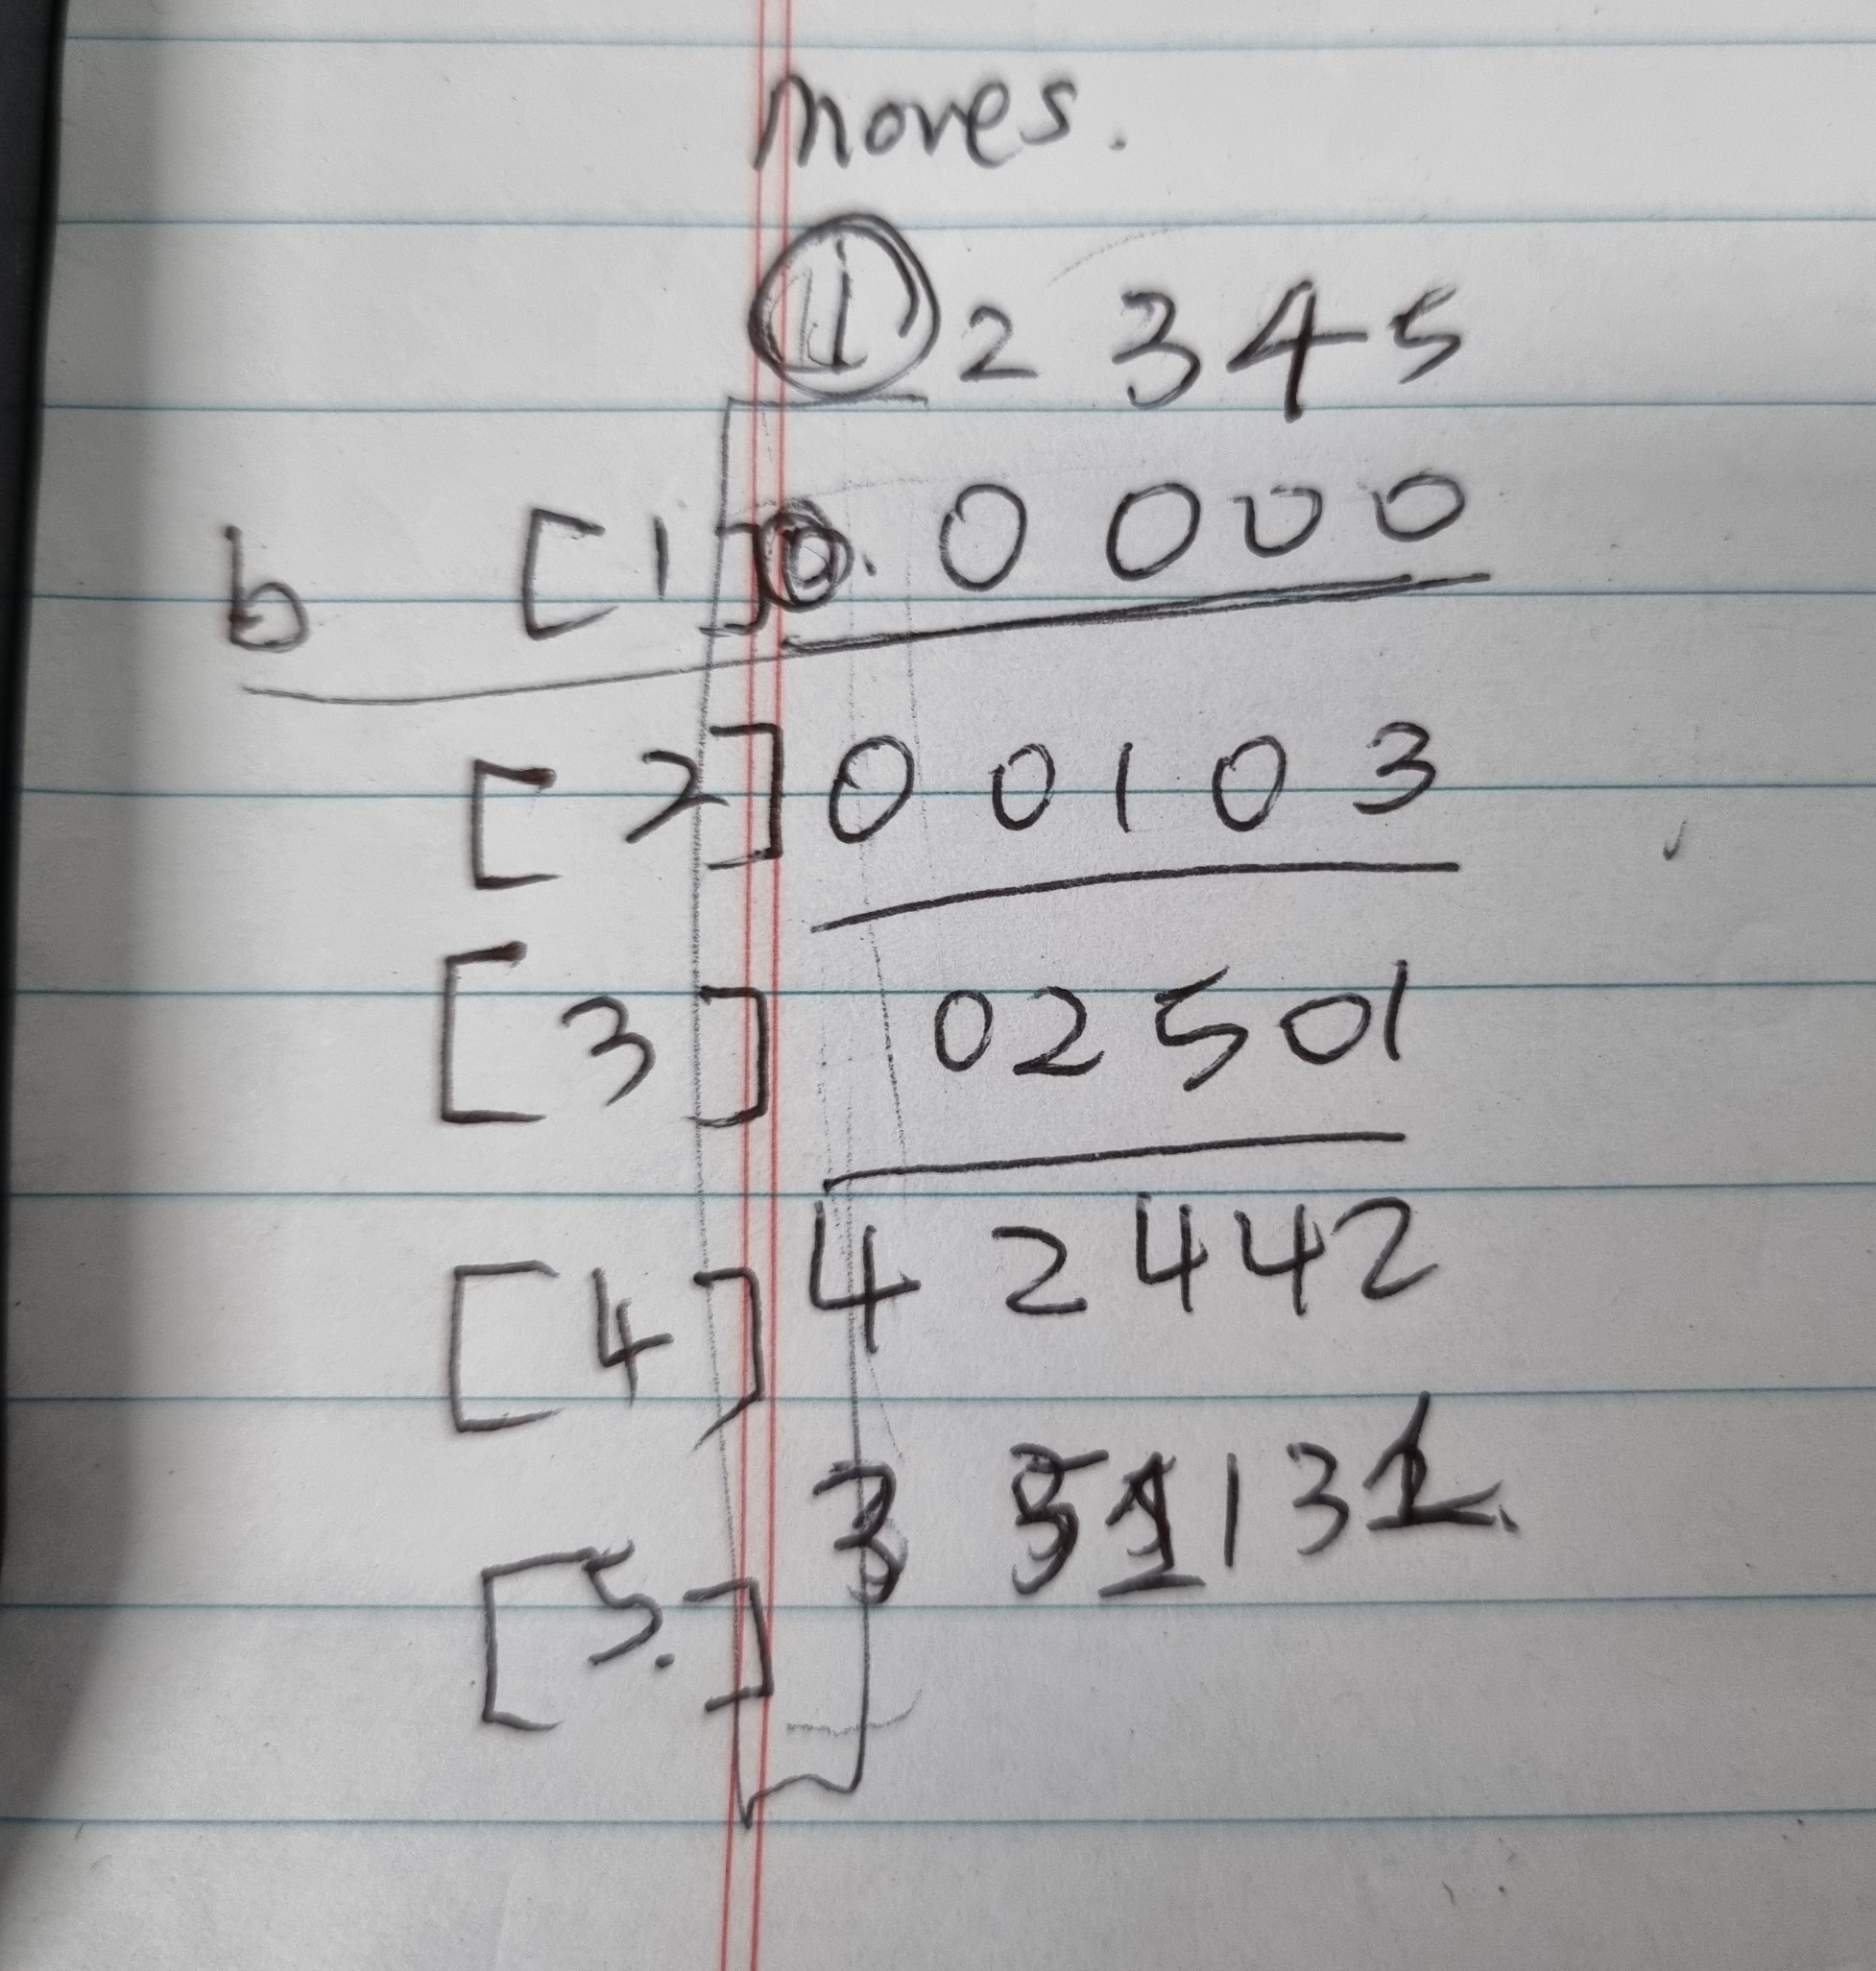 moves.
1 2 3 4 5
b [1] 0. 0 0 0 0
[2] 0 0 1 0 3
[3] 0 2 5 0 1
[4] 4 2 4 4 2
[5.] 3 1 3